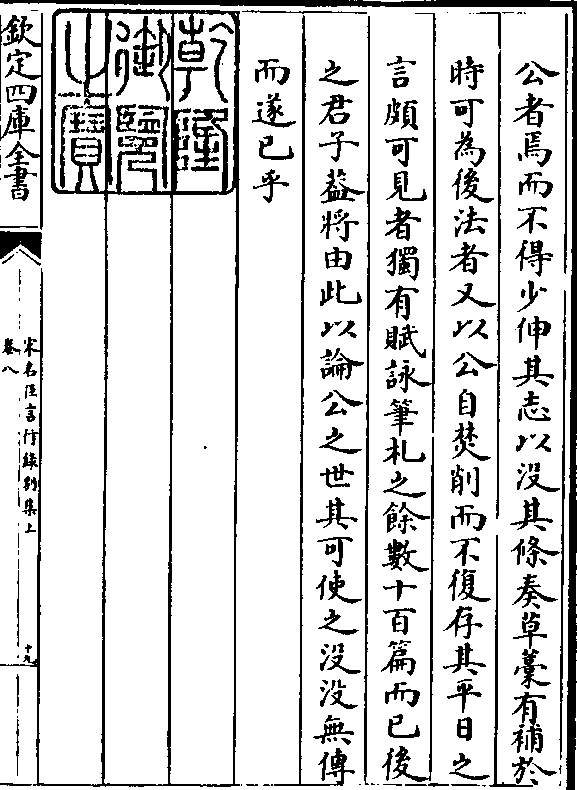 公者焉而不得少伸其志以没其條奏草藁有補於
時可為後法者又以公自焚削而不復存其平日之
言頗可見者獨有賦詠筆札之餘數十百篇而已後
之君子葢將由此以論公之世其可使之没没無傳
而遂已乎
乾隆
御覽
之寶
欽定四庫全書
宋名臣言行錄别集上
卷八
十九